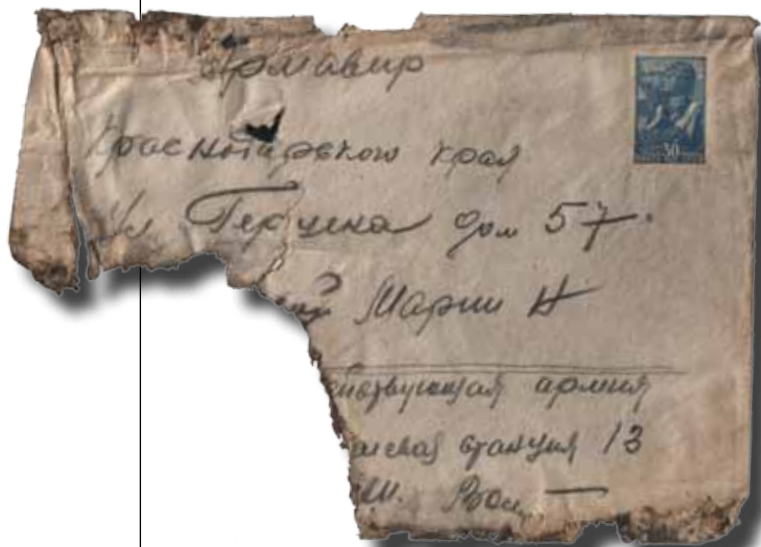 Армавир
30
Краснодарского края
Ул Герцена дом 57.
Марии Н
армия
станция 13